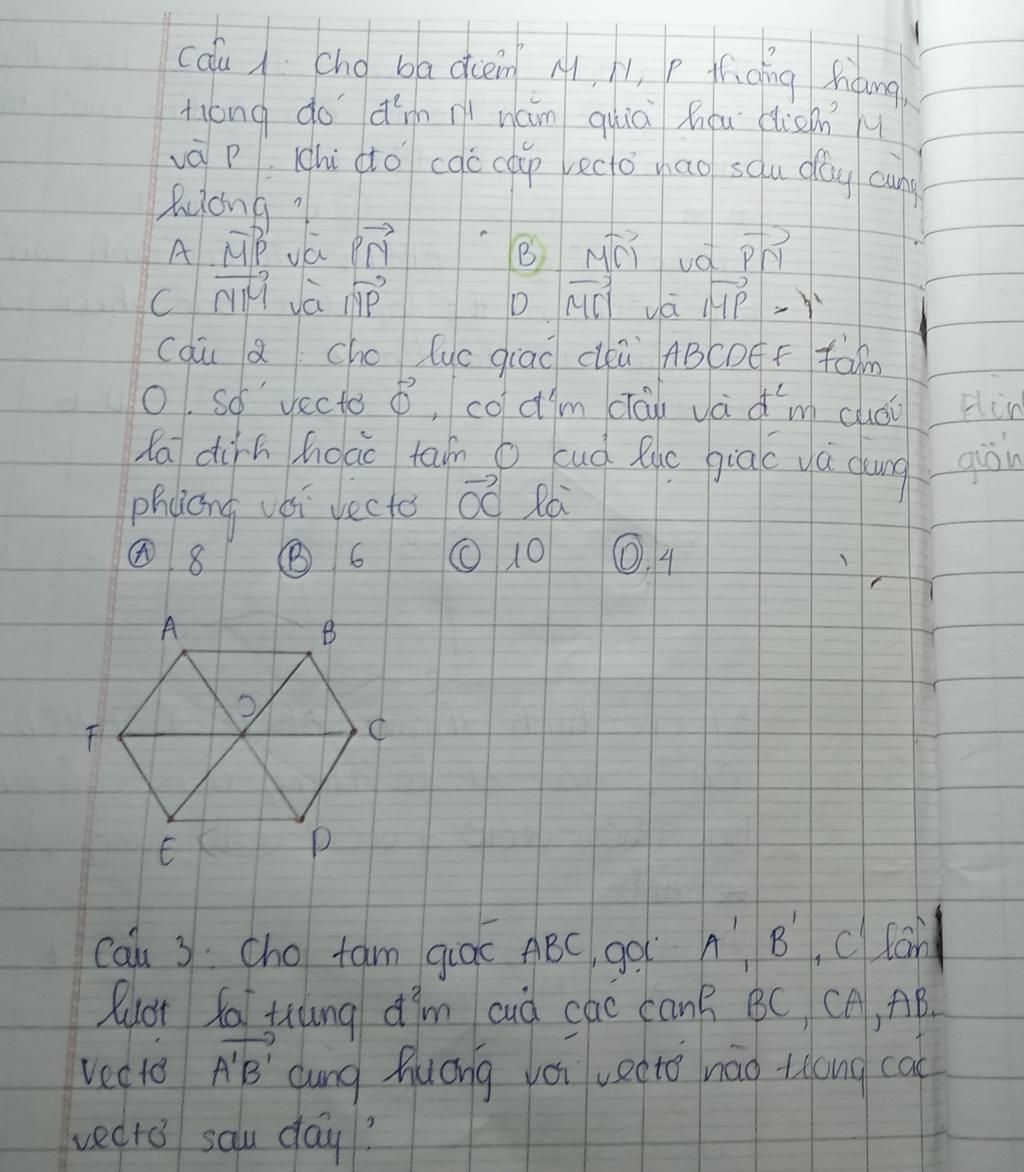 Câu 1. Cho ba điểm M, N, P thẳng hàng,
trong đó đ'm N nằm giữa hai điểm M
và P. Khi đó các cặp vectơ nào sau đây cùng
hướng?
A. MP và PN B MN và PN
C NM và NP D. MN và MP
Câu 2. Cho lục giác đều ABCDEF tâm
O. số vectơ 0, có đ'm đầu và đ'm cuối
là đỉnh hoặc tâm O của lục giác và cùng
phương với vectơ OC là
A. 8 B 6 C 10 D. 4
A B
O
F C
E D
Câu 3. Cho tam giác ABC, gọi A', B', C' lần
lượt là trung đ'm của các cạnh BC, CA, AB.
Vectơ A'B' cùng hướng với vectơ nào trong các
vectơ sau đây?